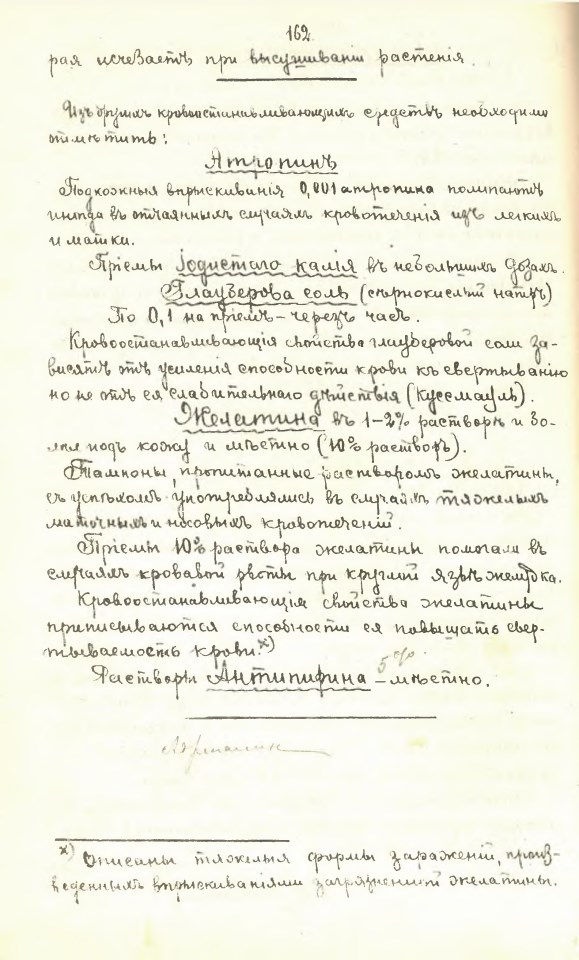 162
рая исчезаетъ при высушиваніи растенія.
Изъ другихъ кровоостанавливающихъ средствъ необходимо
отмѣтить:
Атропинъ
Подкожныя впрыскиванія 0,001 атропина помогаютъ
иногда въ отчаянныхъ случаяхъ кровотеченія изъ легкихъ
и матки.
Пріемы Іодистаго калія въ небольшихъ дозахъ.
Глауберова соль (сѣрнокислый натръ)
По 0,1 на пріемъ – черезъ часъ.
Кровоостанавливающія свойства глауберовой соли за-
висятъ отъ усиленія способности крови къ свертыванію
но не отъ ея слабительнаго дѣйствія (Куссмауль).
Желатина въ 1–2% растворѣ и бо-
лѣе подъ кожу и мѣстно (10% растворъ).
Тампоны, пропитанные растворомъ желатины,
съ успѣхомъ употреблялись въ случаяхъ тяжелыхъ
маточныхъ и носовыхъ кровотеченій.
Пріемы 10% раствора желатины помогали въ
случаяхъ кровавой рвоты при круглой язвѣ желудка.
Кровоостанавливающія свойства желатины
приписываются способности ея повышать свер-
тываемость крови.x)
Растворы Антипирина – 5% мѣстно.
x) Описаны тяжелыя формы зараженій, произ-
веденныхъ впрыскиваніями загрязненной желатины.